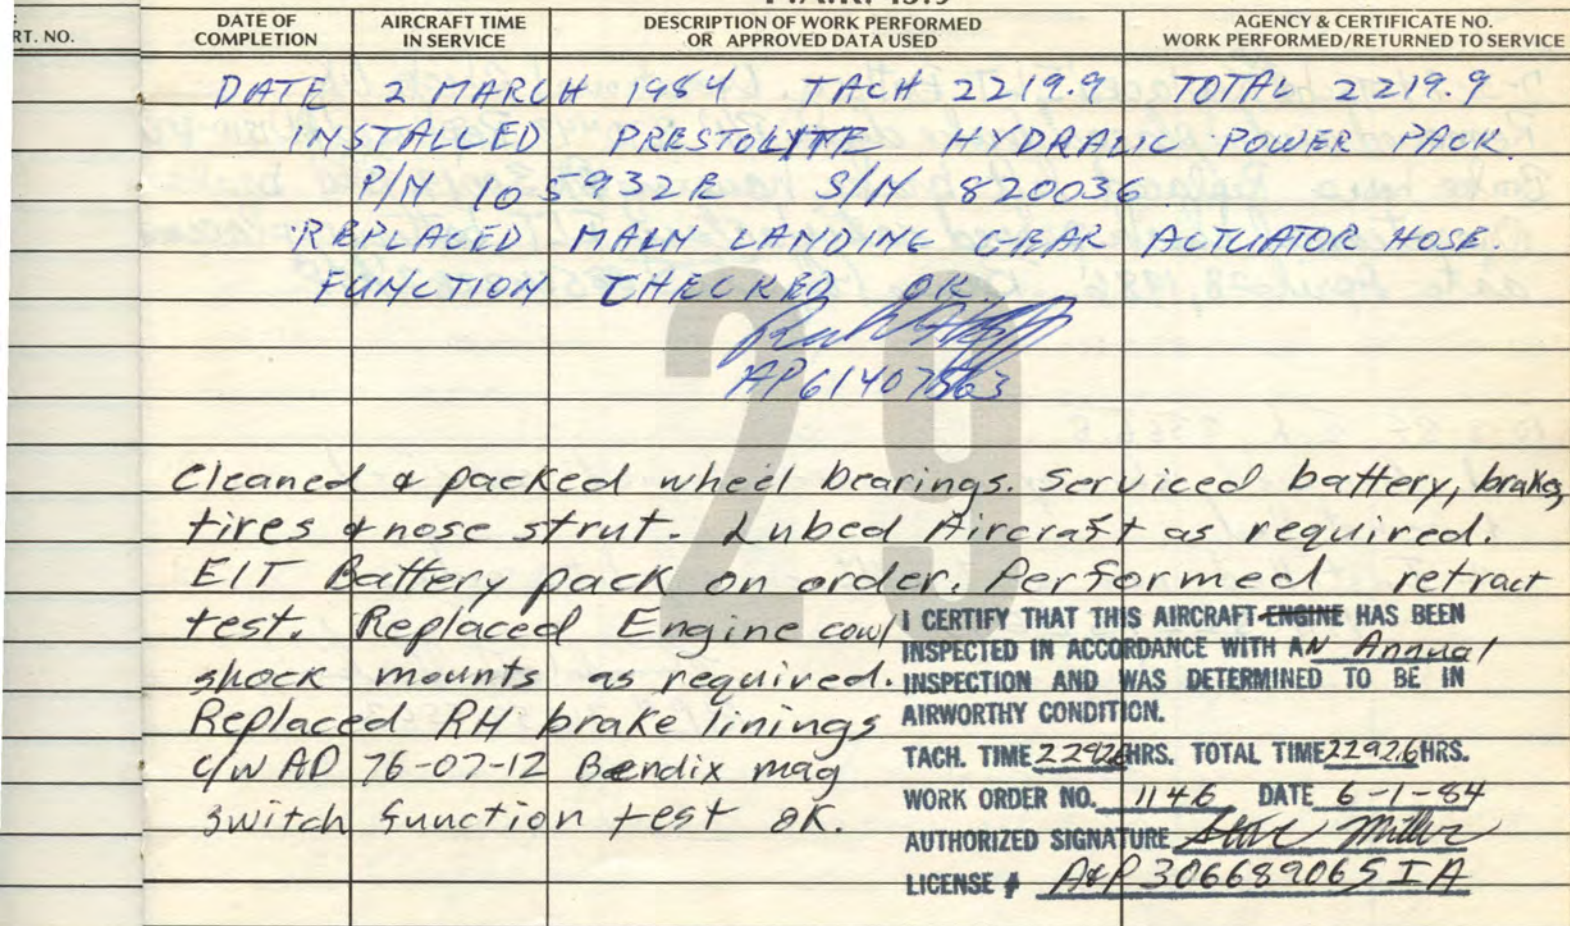 RT. NO.
DATE OF COMPLETION
AIRCRAFT TIME IN SERVICE
DESCRIPTION OF WORK PERFORMED OR APPROVED DATA USED
AGENCY & CERTIFICATE NO. WORK PERFORMED/RETURNED TO SERVICE
DATE 2 MARCH 1984 TACH 2219.9 TOTAL 2219.9
INSTALLED PRESTOLYTE HYDRALIC POWER PACK.
P/N 105932E S/N 820036.
REPLACED MAIN LANDING GEAR ACTUATOR HOSE.
FUNCTION CHECKED OK.
29
Cleaned & packed wheel bearings. Serviced battery, brakes,
tires & nose strut. Lubed Aircraft as required.
EIT Battery pack on order. Performed retract
test. Replaced Engine cowl
shock mounts as required.
Replaced RH brake linings
c/w AD 76-07-12 Bendix mag
switch function test OK.
I CERTIFY THAT THIS AIRCRAFT ENGINE HAS BEEN
INSPECTED IN ACCORDANCE WITH AN Annual
INSPECTION AND WAS DETERMINED TO BE IN
AIRWORTHY CONDITION.
TACH. TIME 2292.6 HRS. TOTAL TIME 2292.6 HRS.
WORK ORDER NO. 1146 DATE 6-1-84
AUTHORIZED SIGNATURE Steve Miller
LICENSE # A&P 306689065 IA